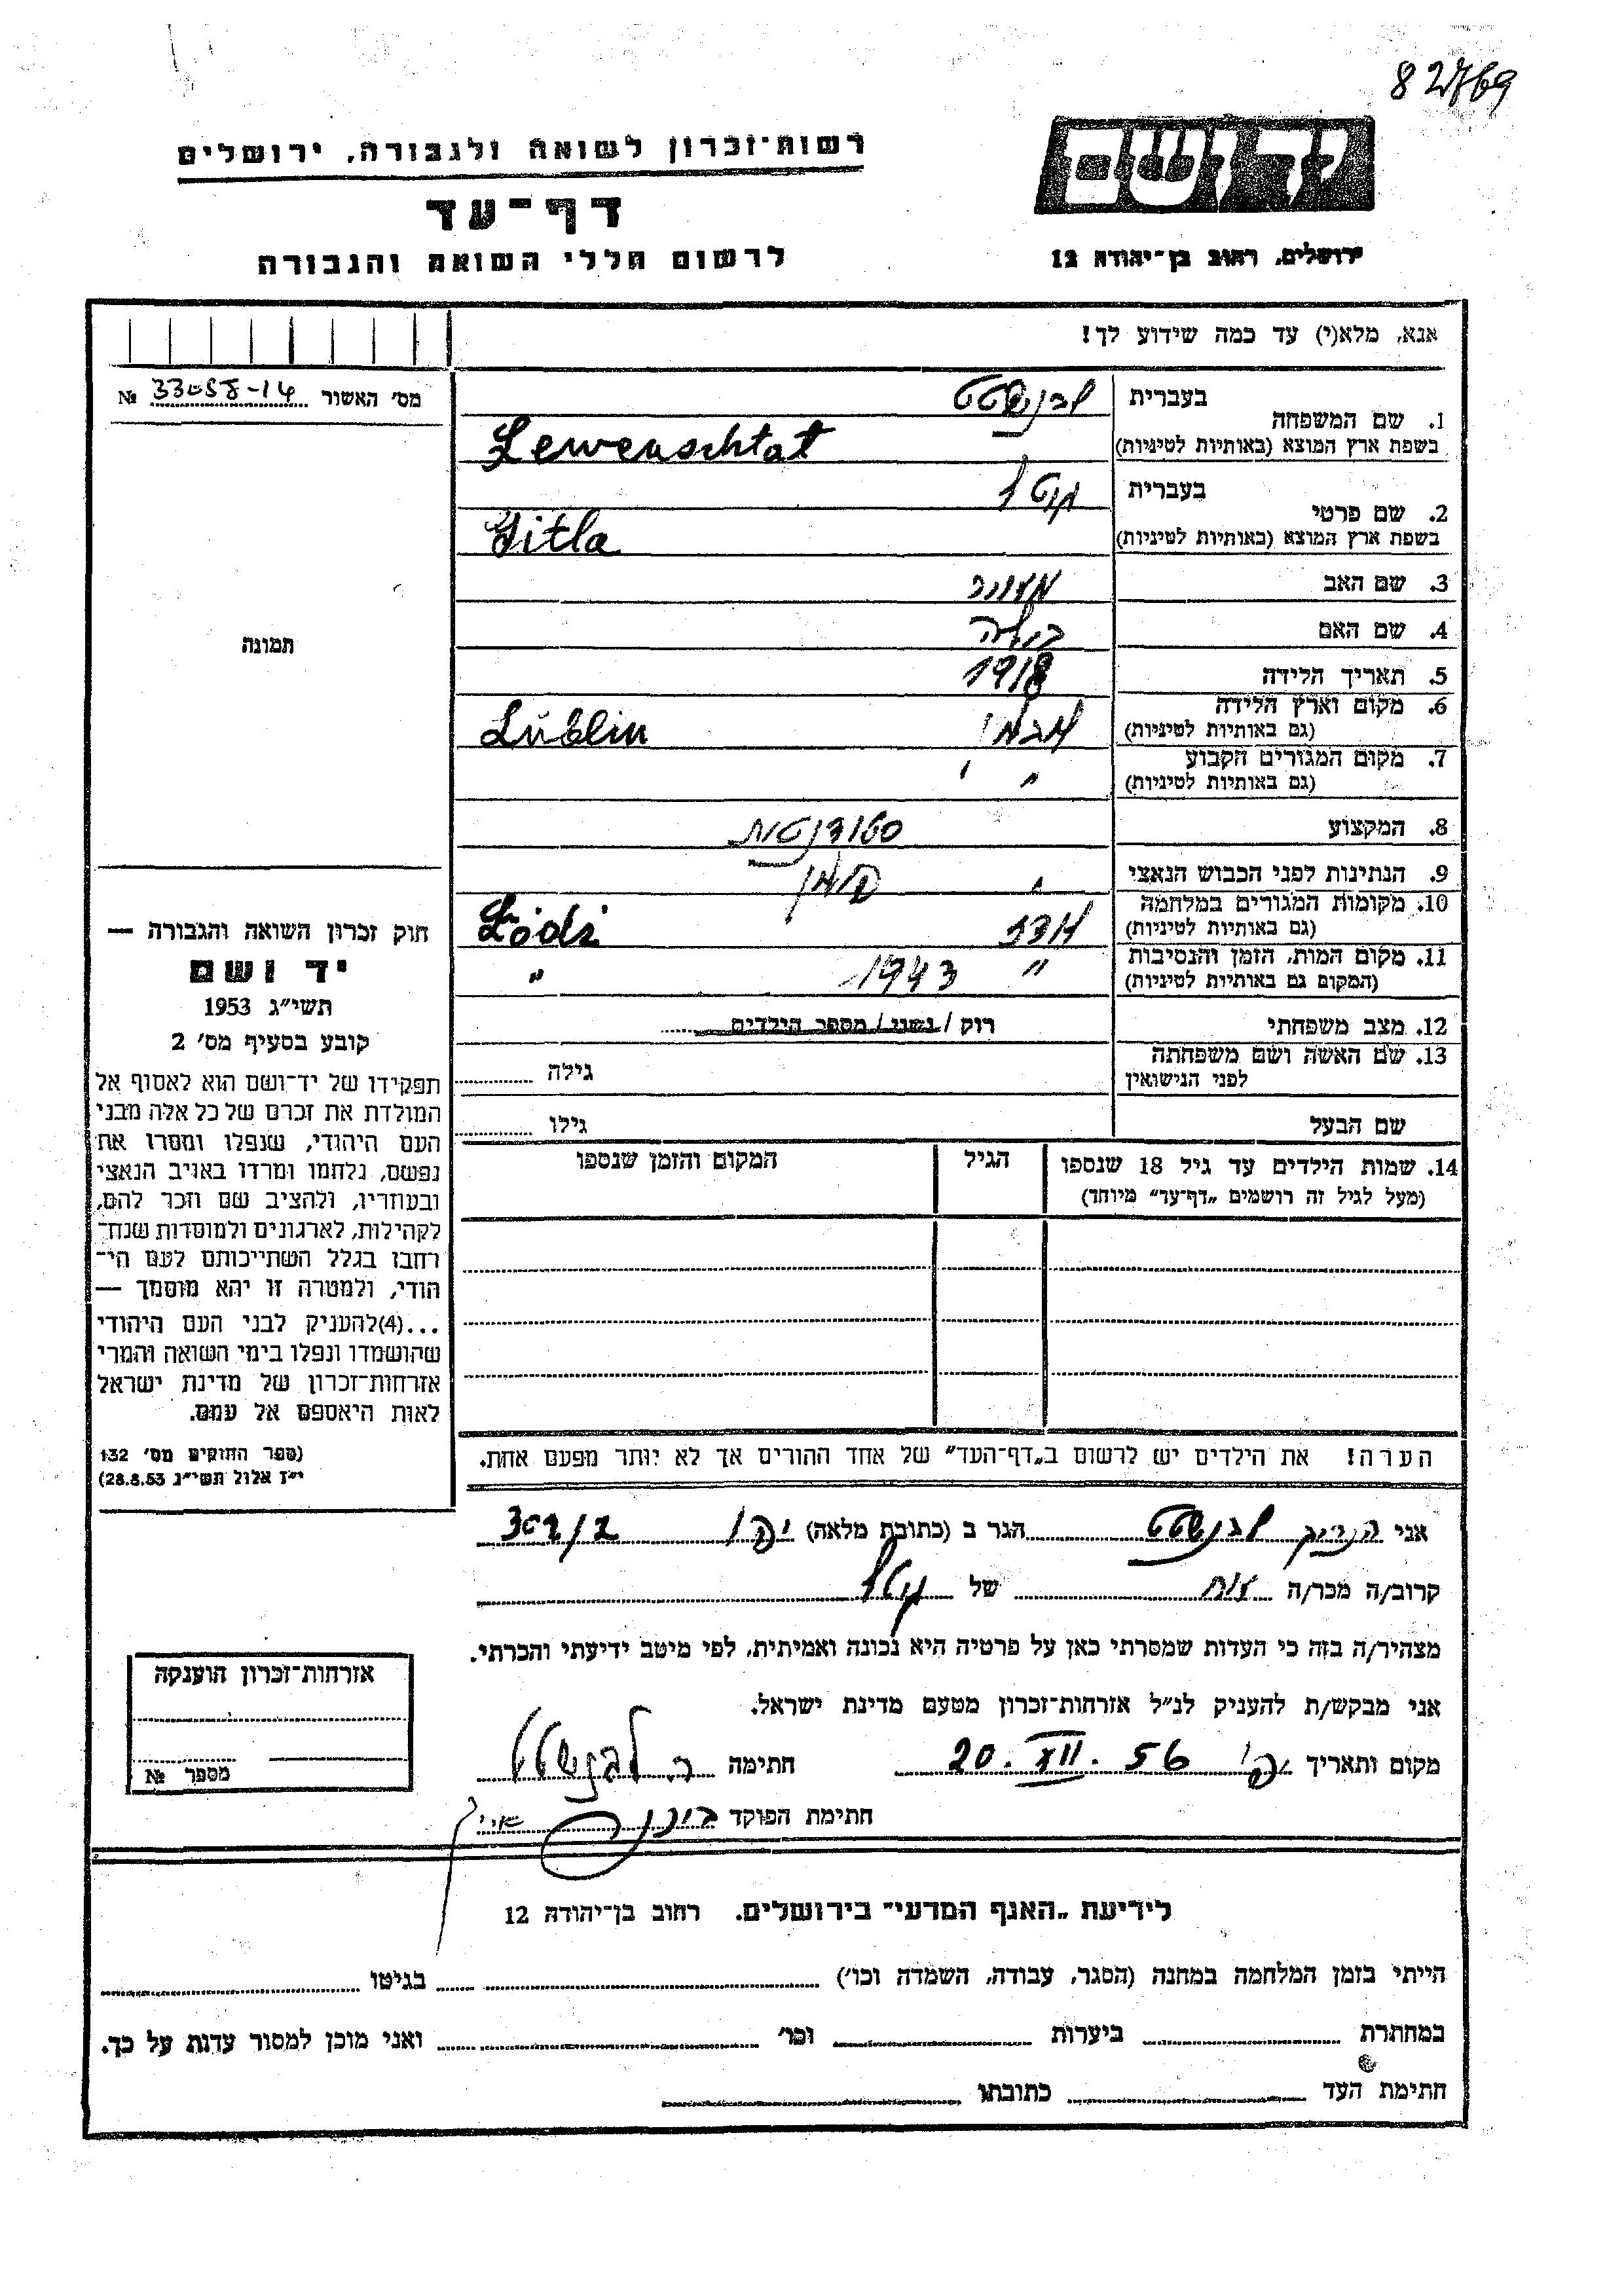 82769
יד ושם
ירושלים, רחוב בן־יהודה 12
רשות־זכרון לשואה ולגבורה, ירושלים
דף־עד
לרשום חללי השואה והגבורה
אנא, מלא(י) עד כמה שידוע לך!
מס' האשור № 33058-14
תמונה
1. שם המשפחה
בעברית לבנשטט
בשפת ארץ המוצא (באותיות לטיניות) Lewenschtat
2. שם פרטי
בעברית גיטל
בשפת ארץ המוצא (באותיות לטיניות) Gitla
3. שם האב
4. שם האם
5. תאריך הלידה 1918
6. מקום וארץ הלידה
(גם באותיות לטיניות) לובלין Lublin
7. מקום המגורים הקבוע
(גם באותיות לטיניות) "
8. המקצוע סטודנטית
9. הנתינות לפני הכבוש הנאצי פולין
10. מקומות המגורים במלחמה
(גם באותיות לטיניות) לודז Łódź
11. מקום המות, הזמן והנסיבות
(המקום גם באותיות לטיניות) " 1943 "
12. מצב משפחתי רוק / נשוי / מספר הילדים
13. שם האשה ושם משפחתה
לפני הנישואין גילה
שם הבעל גילו
14. שמות הילדים עד גיל 18 שנספו
(מעל לגיל זה רושמים „דף־עד" מיוחד)
הגיל
המקום והזמן שנספו
הערה! את הילדים יש לרשום ב„דף־העד" של אחד ההורים אך לא יותר מפעם אחת.
חוק זכרון השואה והגבורה —
יד ושם
תשי"ג 1953
קובע בסעיף מס' 2
תפקידו של יד־ושם הוא לאסוף אל
המולדת את זכרם של כל אלה מבני
העם היהודי, שנפלו ומסרו את
נפשם, נלחמו ומרדו באויב הנאצי
ובעוזריו, ולהציב שם וזכר להם,
לקהילות, לארגונים ולמוסדות שנח־
רבו בגלל השתייכותם לעם הי־
הודי, ולמטרה זו יהא מוסמך —
...(4)להעניק לבני העם היהודי
שהושמדו ונפלו בימי השואה והמרי
אזרחות־זכרון של מדינת ישראל
לאות היאספם אל עמם.
(ספר החוקים מס' 132
י"ז אלול תשי"ג 28.8.53)
אני לבנשטט הגר ב (כתובת מלאה) יפו 302/2
קרוב/ה מכר/ה של גיטל
מצהיר/ה בזה כי העדות שמסרתי כאן על פרטיה היא נכונה ואמיתית, לפי מיטב ידיעתי והכרתי.
אני מבקש/ת להעניק לנ"ל אזרחות־זכרון מטעם מדינת ישראל.
מקום ותאריך יפו 20.XII.56 חתימה לבנשטט
חתימת הפוקד
אזרחות־זכרון הוענקה
מספר №
לידיעת „האגף המדעי" בירושלים, רחוב בן־יהודה 12
הייתי בזמן המלחמה במחנה (הסגר, עבודה, השמדה וכו') בגיטו
במחתרת ביערות וכו' ואני מוכן למסור עדות על כך.
חתימת העד כתובתו